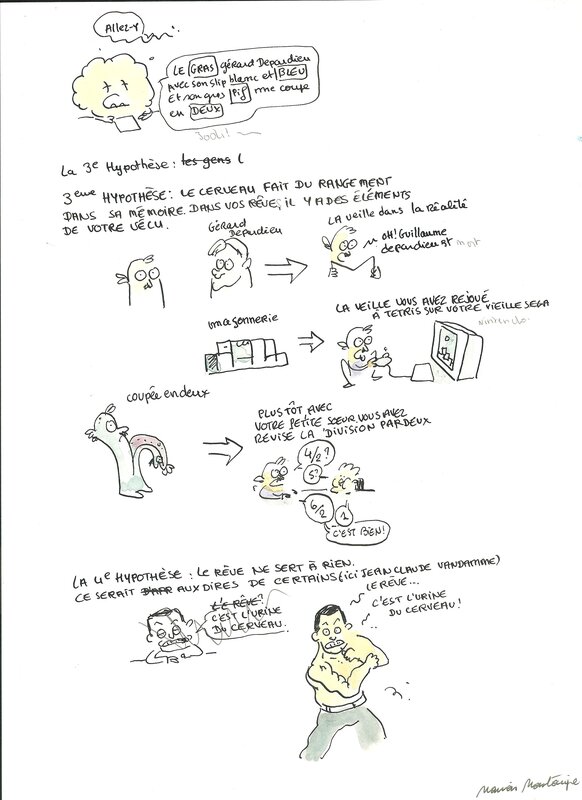 Allez-y
LE GRAS gérard Depardieu
Avec son slip blanc et BLEU
Et son gros Pif me coupe
en DEUX
La 3e Hypothèse : les gens (
3eme HYPOTHÈSE : LE CERVEAU FAIT DU RANGEMENT
DANS SA MÉMOIRE. DANS VOS RÊVE, IL Y A DES ÉLÉMENTS
DE VOTRE VÉCU.
Gérard
Depardieu
LA VEILLE dans la Réalité
OH! Guillaume
depardieu est mort
maçonnerie
LA VEILLE VOUS AVEZ REJOUÉ
À TETRIS SUR VOTRE VIEILLE SEGA
nintendo.
coupée en deux
PLUS TÔT AVEC
VOTRE PETITE SŒUR VOUS AVEZ
RÉVISÉ LA DIVISION PAR DEUX
4/2?
5?
6/2
1
C'EST BIEN!
LA 4e HYPOTHÈSE : LE RÊVE NE SERT À RIEN.
CE SERAIT AUX DIRES DE CERTAINS (ici JEAN CLAUDE VANDAMME)
LE RÊVE?
C'EST L'URINE
DU CERVEAU.
LE RÊVE...
C'EST L'URINE
DU CERVEAU!
Marion Montaigne